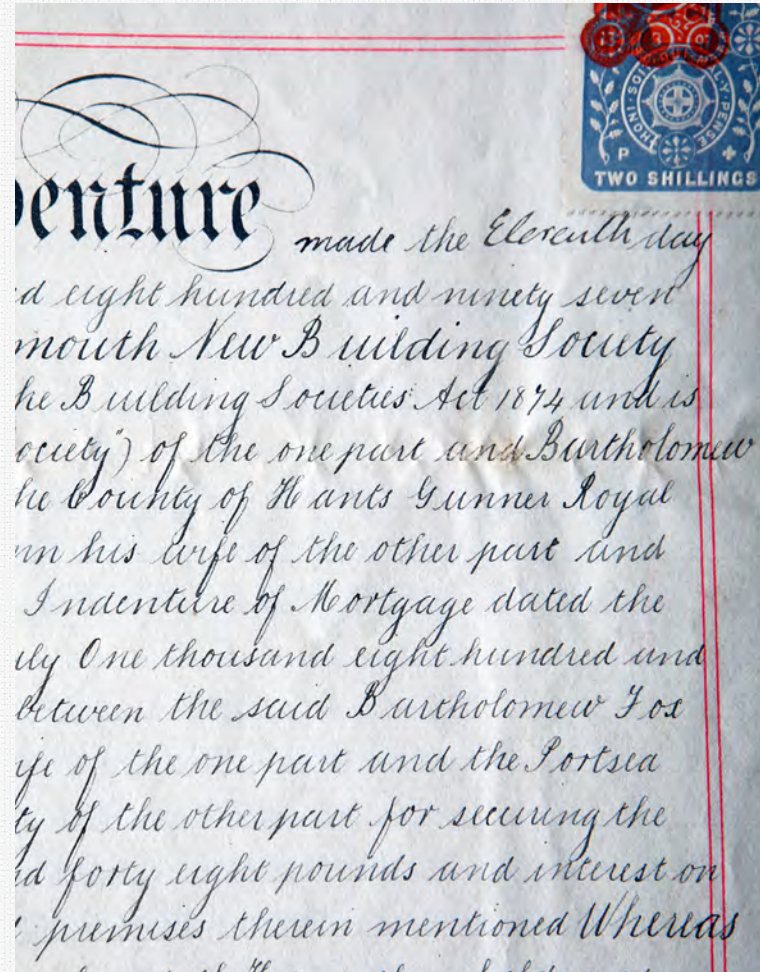 HONI SOI
Y PENSE
P
TWO SHILLINGS
enture made the Eleventh day
d eight hundred and ninety seven
mouth New Building Society
he Building Societies Act 1874 and is
ociety") of the one part and Bartholomew
he County of Hants Gunner Royal
nn his wife of the other part and
Indenture of Mortgage dated the
uly One thousand eight hundred and
between the said Bartholomew Fox
ife of the one part and the Portsea
ty of the other part for securing the
nd forty eight pounds and interest on
premises therein mentioned Whereas